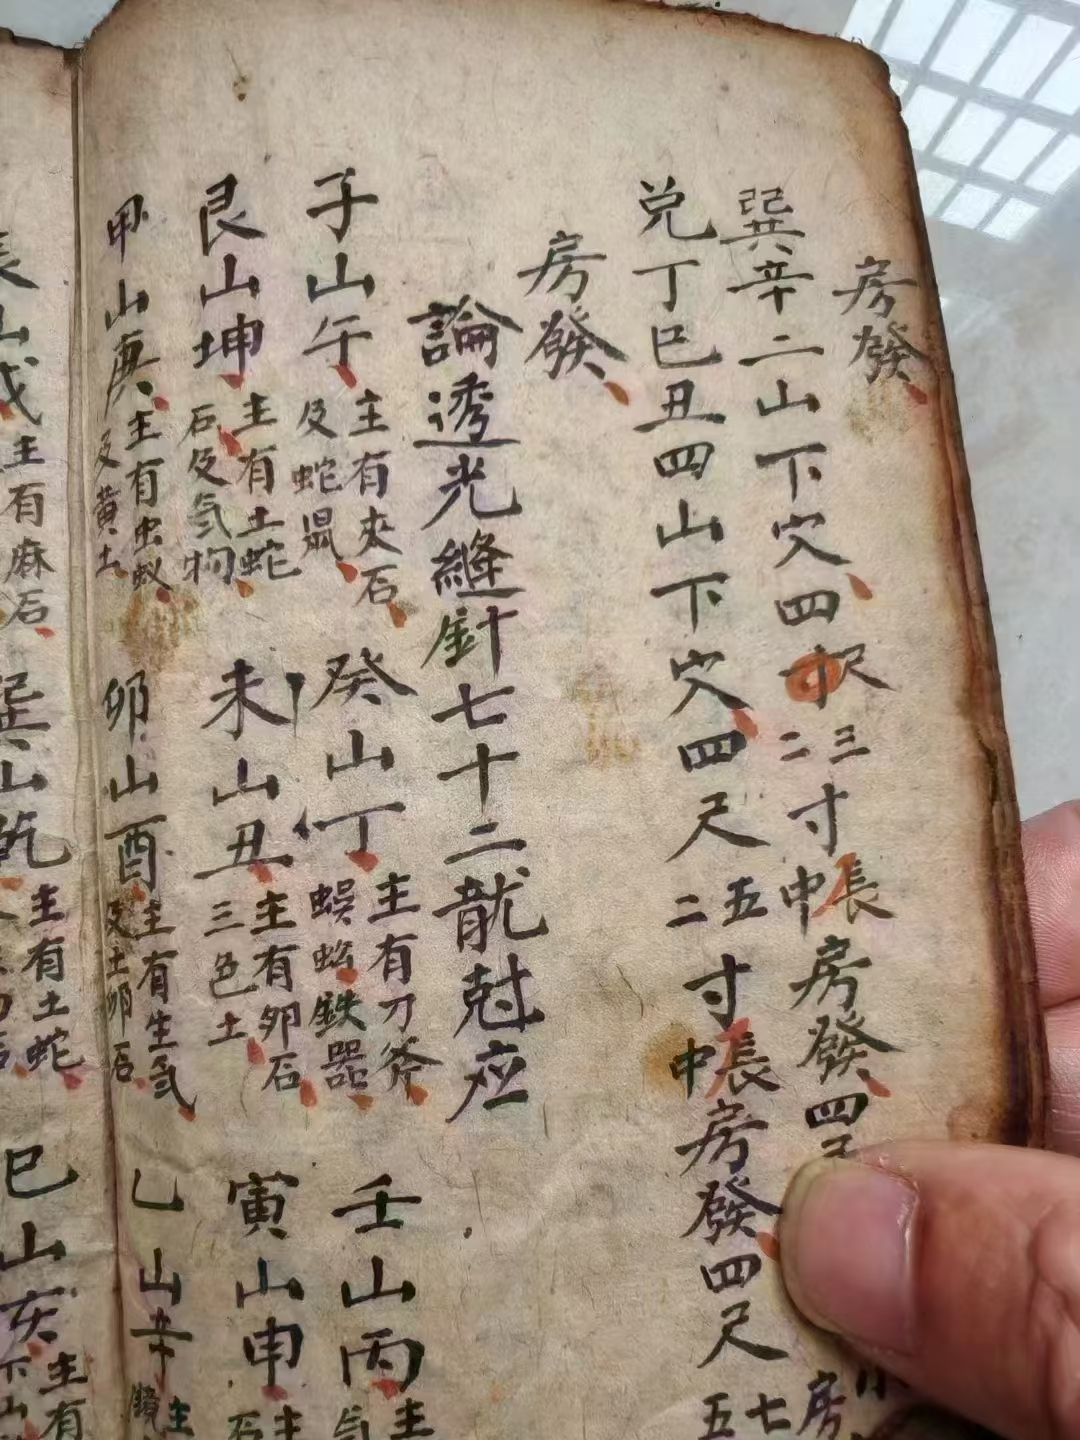 房發
巽辛二山下穴四尺三二寸長中房發四
兌丁巳丑四山下穴四尺五二寸長中房發四尺七五
房
房發
論透光縫針七十二龍尅应
子山午 主有夾石及蛇鼠
癸山丁 主有刀斧蜈蚣鉄器
壬山丙 主 氣
艮山坤 主有土蛇石及氣物
未山丑 主有卵石三色土
寅山申 主 石
甲山庚 主有虫蚁及黄土
卯山酉 主有生氣及土卵石
乙山辛 主 鏡
辰山戌 主有麻石
巽山乾 主有土蛇
巳山亥 主有